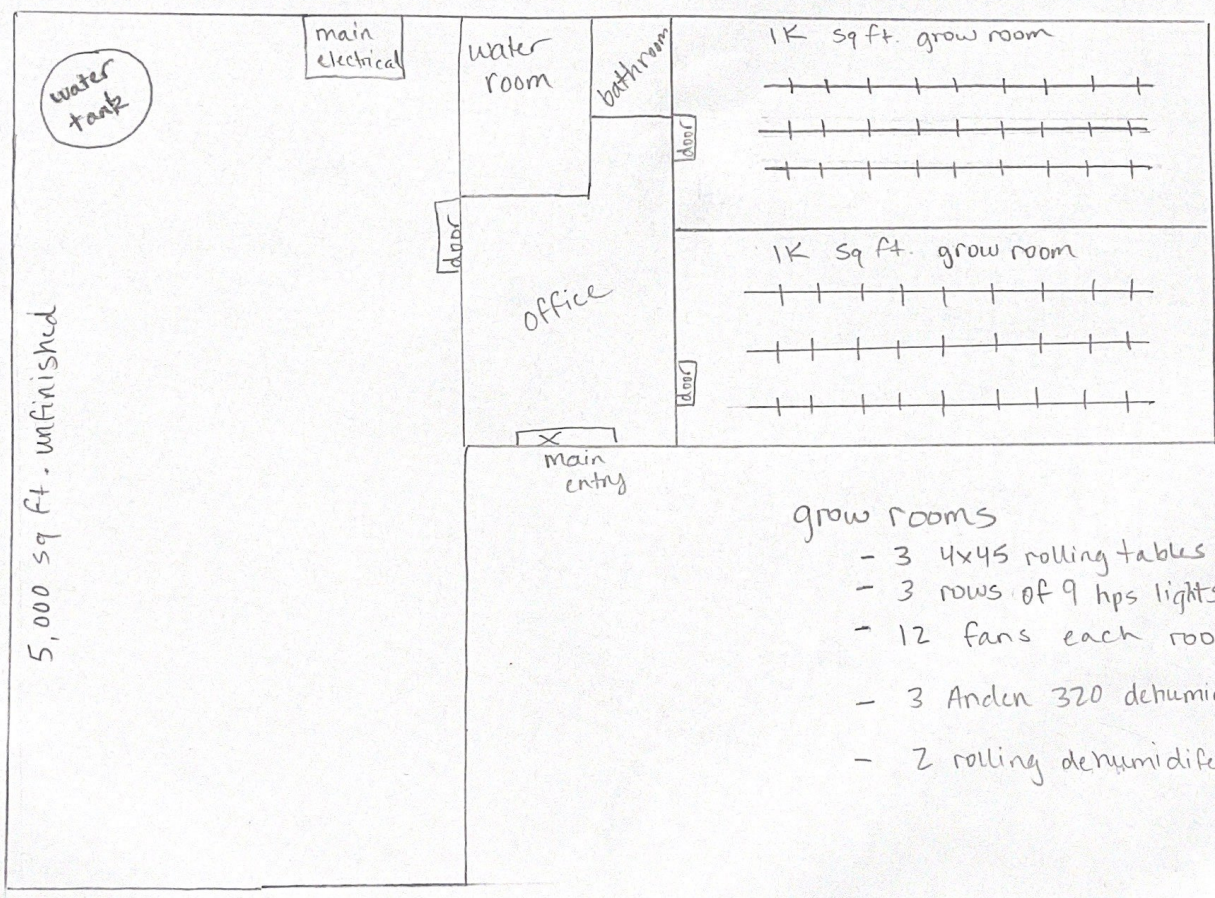 main
electrical
water
tank
water
room
bathroom
1K sq ft. grow room
door
door
1K sq ft. grow room
office
door
5,000 sq ft. unfinished
X
main
entry
grow rooms
- 3 4x45 rolling tables
- 3 rows of 9 hps lights
- 12 fans each roo
- 3 Anden 320 dehumi
- 2 rolling dehumidife